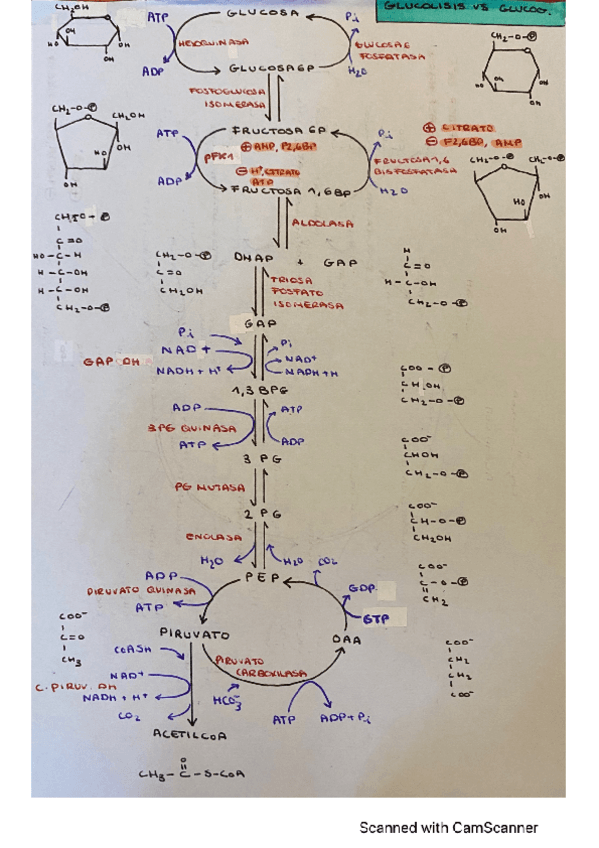 GLUCOLISIS VS GLUCOG.
CH₂OH
OH
HO
OH
OH
ATP
GLUCOSA
Pi
HEXOQUINASA
GLUCOSA6
FOSFATASA
ADP
GLUCOSA6P
H₂O
CH₂-O-Ⓟ
HO
OH
OH
FOSFOGLUCOSA
ISOMERASA
CH₂-O-Ⓟ
CH₂OH
HO
OH
OH
ATP
FRUCTOSA 6P
Pi
⊕ CITRATO
⊖ F2,6BP, AMP
PFK1
⊕ AMP, F2,6BP
⊖ H⁺, CITRATO
ATP
FRUCTOSA 1,6
BISFOSFATASA
ADP
FRUCTOSA 1,6BP
H₂O
CH₂-O-Ⓟ
CH₂-O-Ⓟ
HO
OH
OH
ALDOLASA
C=O
HO-C-H
H-C-OH
H-C-OH
CH₂-O-Ⓟ
CH₂-O-Ⓟ
C=O
CH₂OH
DHAP + GAP
H
C=O
H-C-OH
CH₂-O-Ⓟ
TRIOSA
FOSFATO
ISOMERASA
GAP
Pi
Pi
NAD+
NAD⁺
GAP DH
NADH + H⁺
NADH+H
1,3 BPG
COO-Ⓟ
CH OH
CH₂-O-Ⓟ
ADP
ATP
3PG QUINASA
ATP
ADP
3 PG
COO⁻
CHOH
CH₂-O-Ⓟ
PG MUTASA
2 PG
COO⁻
CH-O-Ⓟ
CH₂OH
ENOLASA
H₂O
H₂O
CO₂
ADP
PEP
COO⁻
C-O-Ⓟ
CH₂
PIRUVATO QUINASA
GDP
ATP
GTP
COO⁻
C=O
CH₃
PIRUVATO
OAA
COO⁻
CH₂
CH₂
COO⁻
COASH
PIRUVATO
CARBOXILASA
NAD⁺
C. PIRUV. DH
NADH + H⁺
HCO₃⁻
CO₂
ATP
ADP+Pi
ACETILCOA
O
CH₃-C-S-COA
Scanned with CamScanner